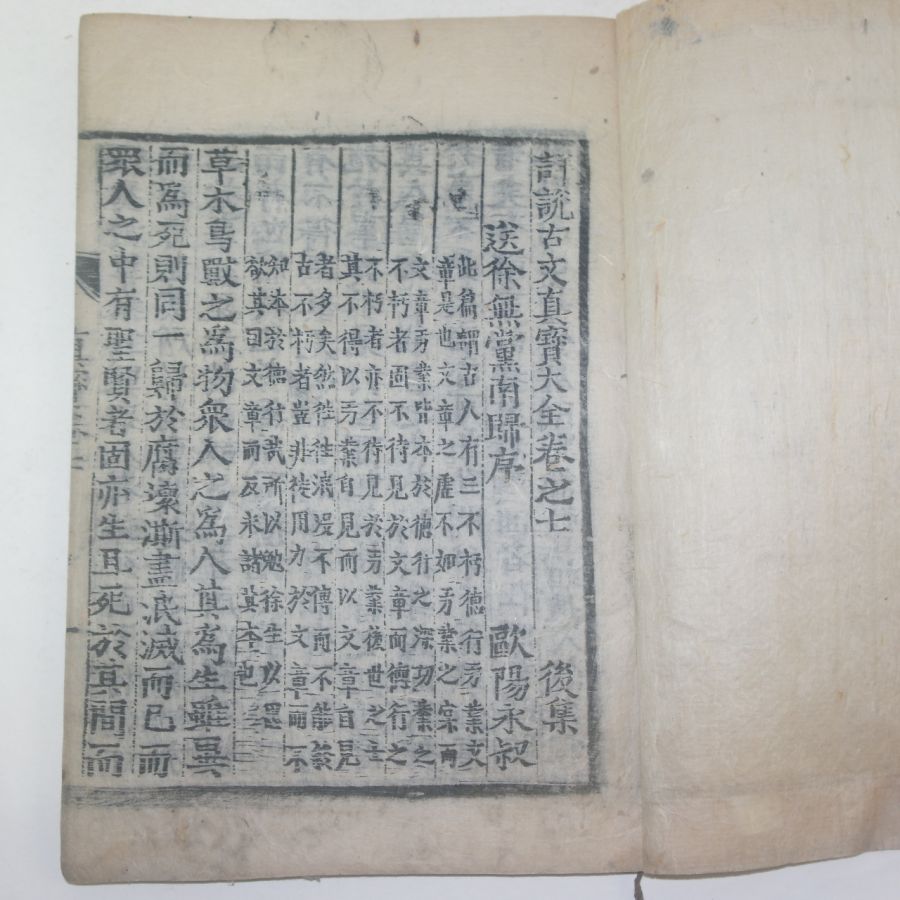 詳說古文真寶大全卷之七 後集
送徐無黨南歸序 歐陽永叔
此篇謂古人有三不朽德行功業文
章是也文章之虛不如功業之實而
文章功業皆本於德行之深功業之
不朽者固不待見於文章而德行之
不朽者亦不待見於功業後世之士
其不得以功業自見而以文章自見
者多矣然徃徃泯没不傳而不能
古不朽者豈非徒用力於文章而不
知本於德行哉所以勉徐生以進
欲其因文章而反求諸其本也
草木鳥獸之爲物衆人之爲人其爲生雖異
而爲死則同一歸於腐壞澌盡泯滅而已而
衆人之中有聖賢者固亦生且死於其間而